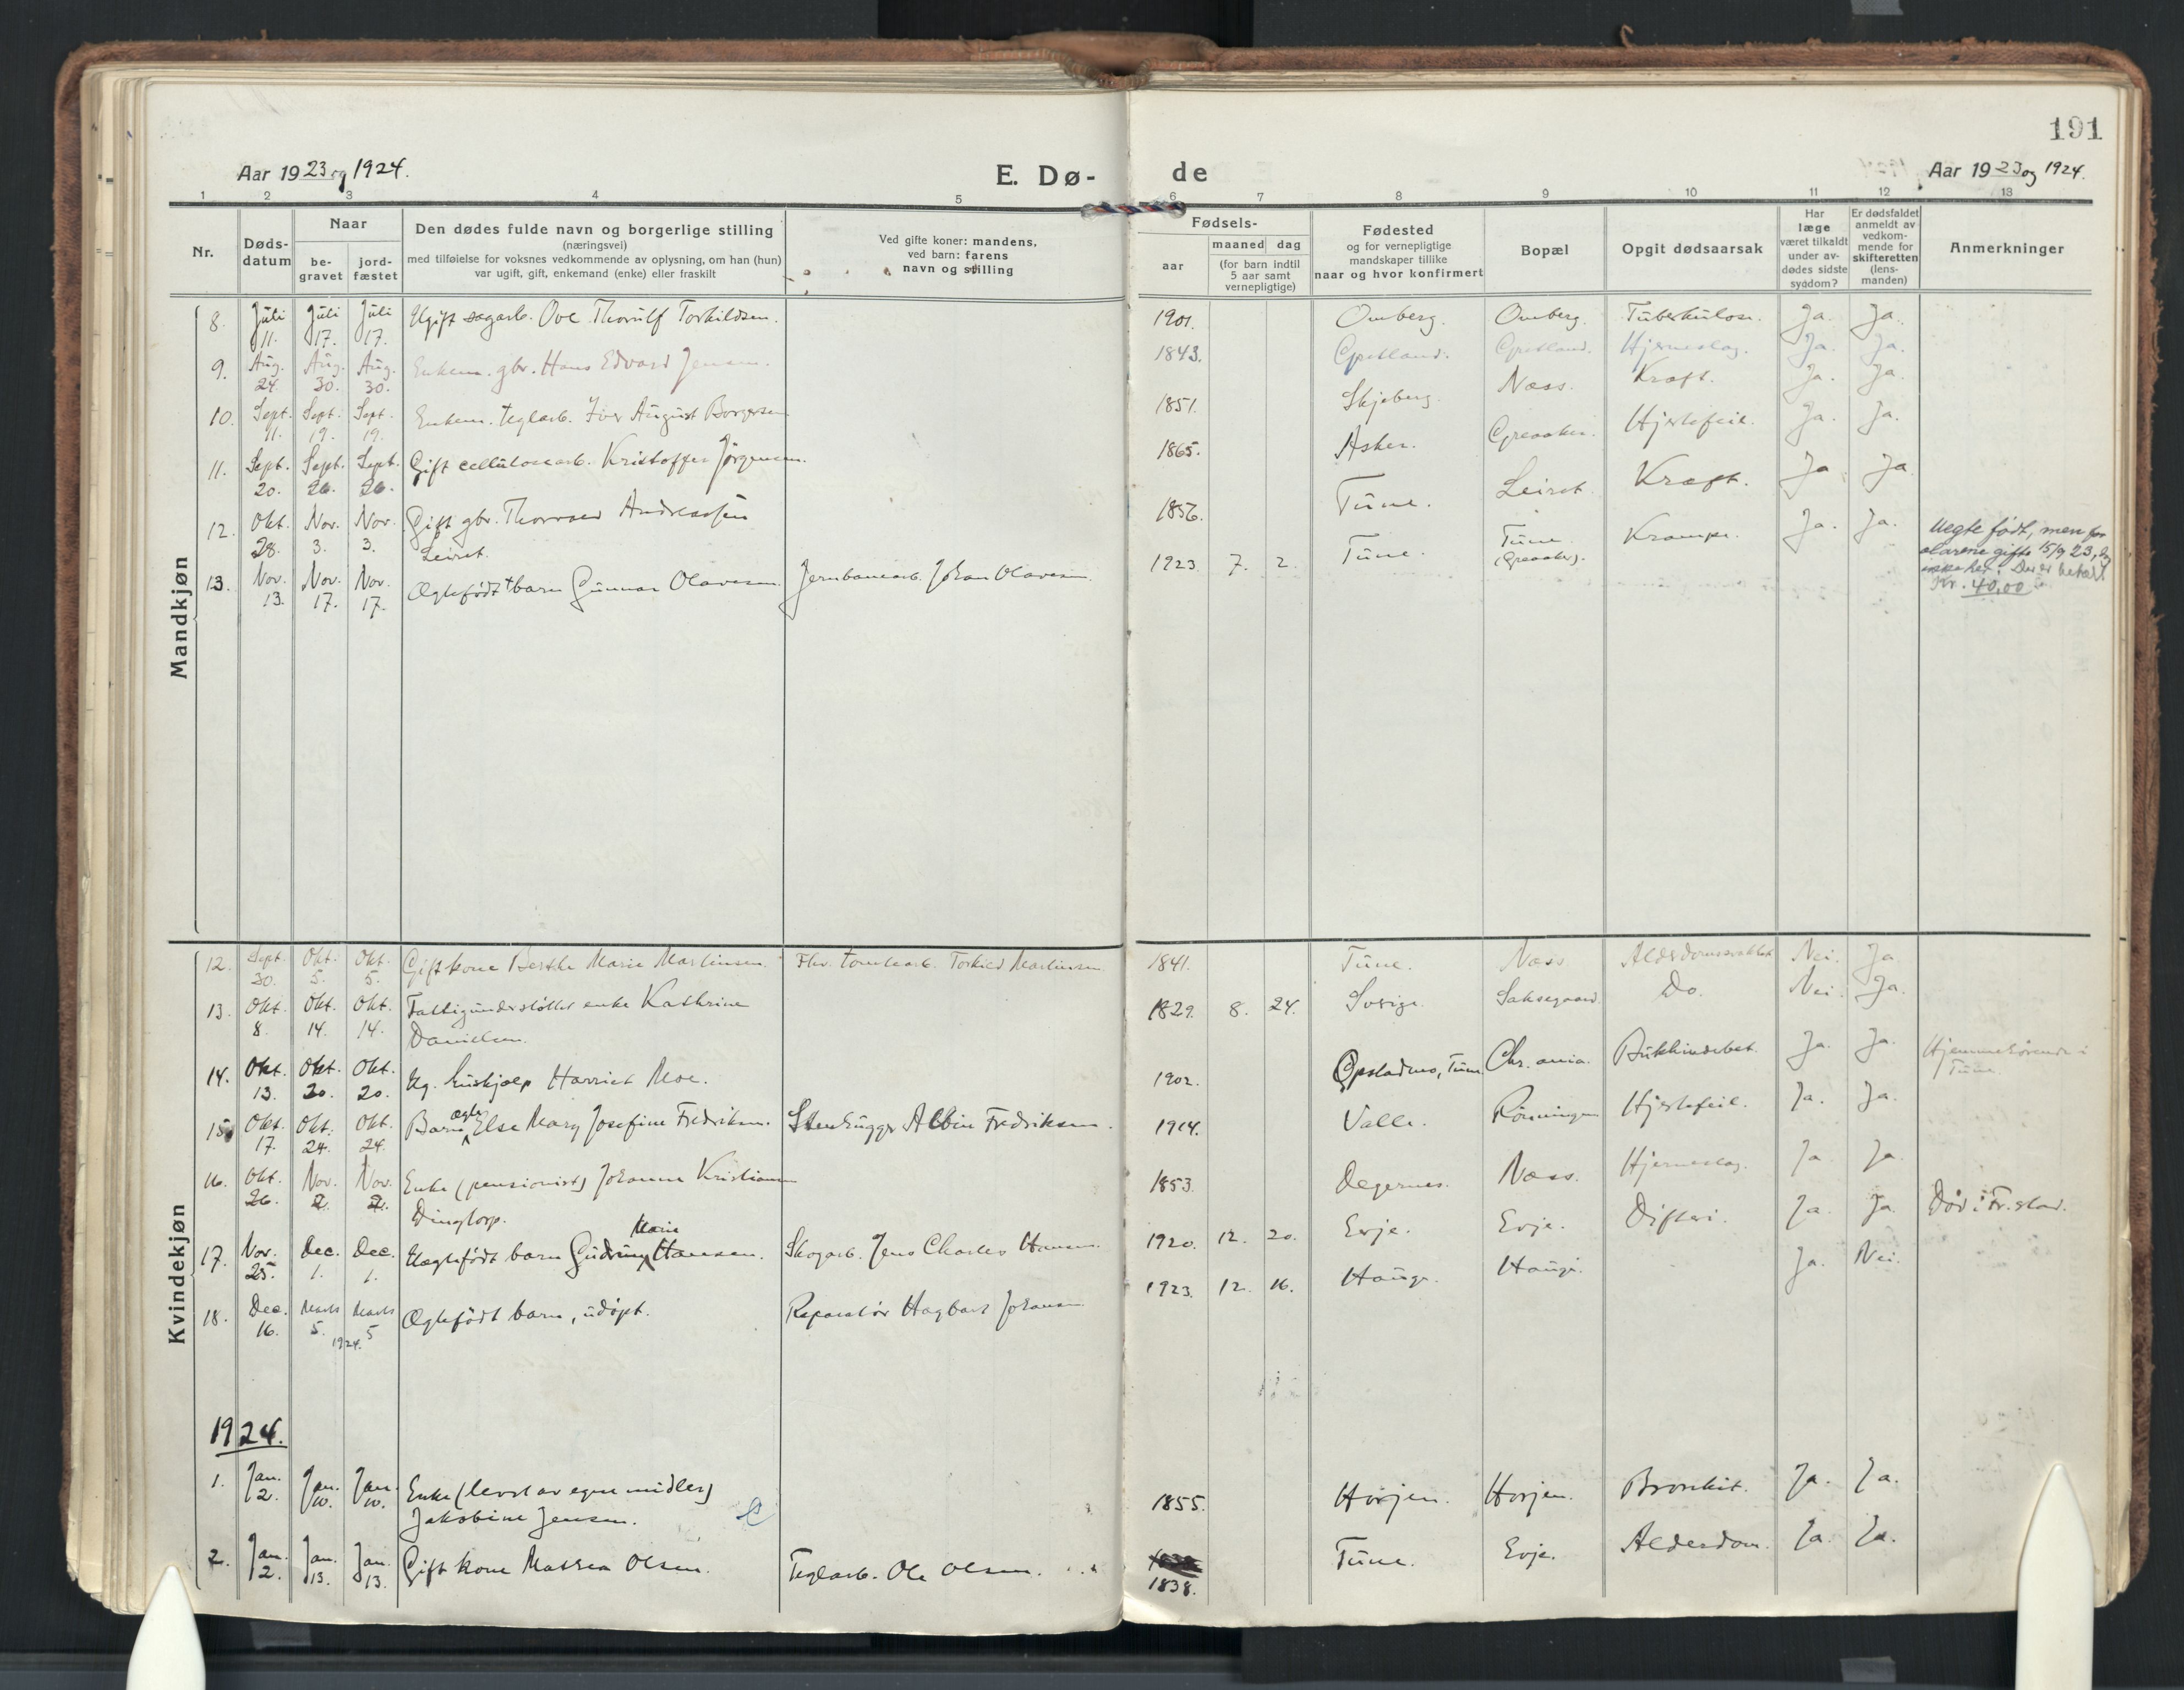 191
Aar 1923 og 1924.
E. Dø-
de
Aar 1923 og 1924.
1 2 3 4 5 6 7 8 9 10 11 12 13
Nr.
Døds-
datum
Naar
be-
gravet
jord-
fæstet
Den dødes fulde navn og borgerlige stilling
(næringsvei)
med tilføielse for voksnes vedkommende av oplysning, om han (hun)
var ugift, gift, enkemand (enke) eller fraskilt
Ved gifte koner: mandens,
ved barn: farens
navn og stilling
Fødsels-
aar
maaned dag
(for barn indtil
5 aar samt
vernepligtige)
Fødested
og for vernepligtige
mandskaper tillike
naar og hvor konfirmert
Bopæl
Opgit dødsaarsak
Har
læge
været tilkaldt
under av-
dødes sidste
sygdom?
Er dødsfaldet
anmeldt av
vedkom-
mende for
skifteretten
(lens-
manden)
Anmerkninger
Mandkjøn
8. Juli 11. Juli 17. Juli 17. Ugift sagarb. Ove Thorulf Torkildsen. 1901. Omberg. Omberg. Tuberkulose. Ja. Ja.
9. Aug. 24. Aug. 30. Aug. 30. Enkem. gbr. Hans Edvard Jensen. 1843. Hjerneslag. Ja. Ja.
10. Sept. 11. Sept. 19. Sept. 19. Enkem. teglarb. Iver August Borgersen 1851. Skjeberg. Næss. Kræft. Ja. Ja.
11. Sept. 20. Sept. 26. Sept. 26. Gift cellulosearb. Kristoffer Jørgensen. 1865. Asker. Greaaker. Hjertefeil. Ja. Ja.
12. Okt. 28. Nov. 3. Nov. 3. Gift gbr. Thorvald Andreassen
Leiret. 1856. Tune. Leiret. Kræft. Ja Ja
13. Nov. 13. Nov. 17. Nov. 17. Ægtefødt barn Gunnar Olavesen. Jernbanearb. Johan Olavesen. 1923 7. 2. Tune. Tune
(Greaaker). Krampe. Ja. Ja. Uegte født, men for
ældrene gifte 15/9 23,
Der er betalt
Kr. 40.00
Kvindekjøn
12. Sept. 30. Okt. 5. Okt. 5. Gift kone Berthe Marie Martinsen. Fhv. tomtearb. Torkild Martinsen 1841. Tune. Næss. Alderdomssvakhet Nei. Ja
13. Okt. 8. Okt. 14. Okt. 14. Fattigunderstøttet enke Kathrine
Danielsen. 1829. 8. 24. Sverige. Saksegaard. Do. Nei. Ja.
14. Okt. 13. Okt. 20. Okt. 20. Ug. hushjælp Harriet Moe. 1902. Opstadmo, Tune Chr.ania. Bukhindebet. Ja. Ja. Hjemmehørende i
Tune.
15. Okt. 17. Okt. 24. Okt. 24. Barn ægte Else Mary Josefine Fredriksen. Stenhugger Albin Fredriksen. 1914. Valle. Rønningen Hjertefeil. Ja. Ja.
16. Okt. 26. Nov. 2. Nov. 2. Enke (pensionist) Johanne Kristiansen
Dingtorp. 1853. Degernes. Næss. Hjerneslag. Ja. Ja
17. Nov. 25. Dec. 1. Dec. 1. Uægtefødt barn Gudrun Marie Hansen. Skogarb. Jens Charles Hansen. 1920. 12. 20. Evje. Evje. Difteri. Ja. Ja. Død i Fr.stad.
18. Dec. 16. Marts 5. Marts 5 1924. Ægtefødt barn, udøpt. Reparatør Hagbart Johansen 1923. 12. 16. Hauge. Hauge. Ja. Nei.
1924.
1. Jan. 2. Jan. 10. Jan. 10. Enke (levet av egne midler)
Jakobine Jensen. 1855. Horjen. Horjen. Bronkit. Ja. Ja.
2. Jan. 2. Jan. 13. Jan. 13. Gift kone Mathea Olsen. Teglarb. Ole Olsen. 1838. Tune. Evje. Alderdom. Ja. Ja.